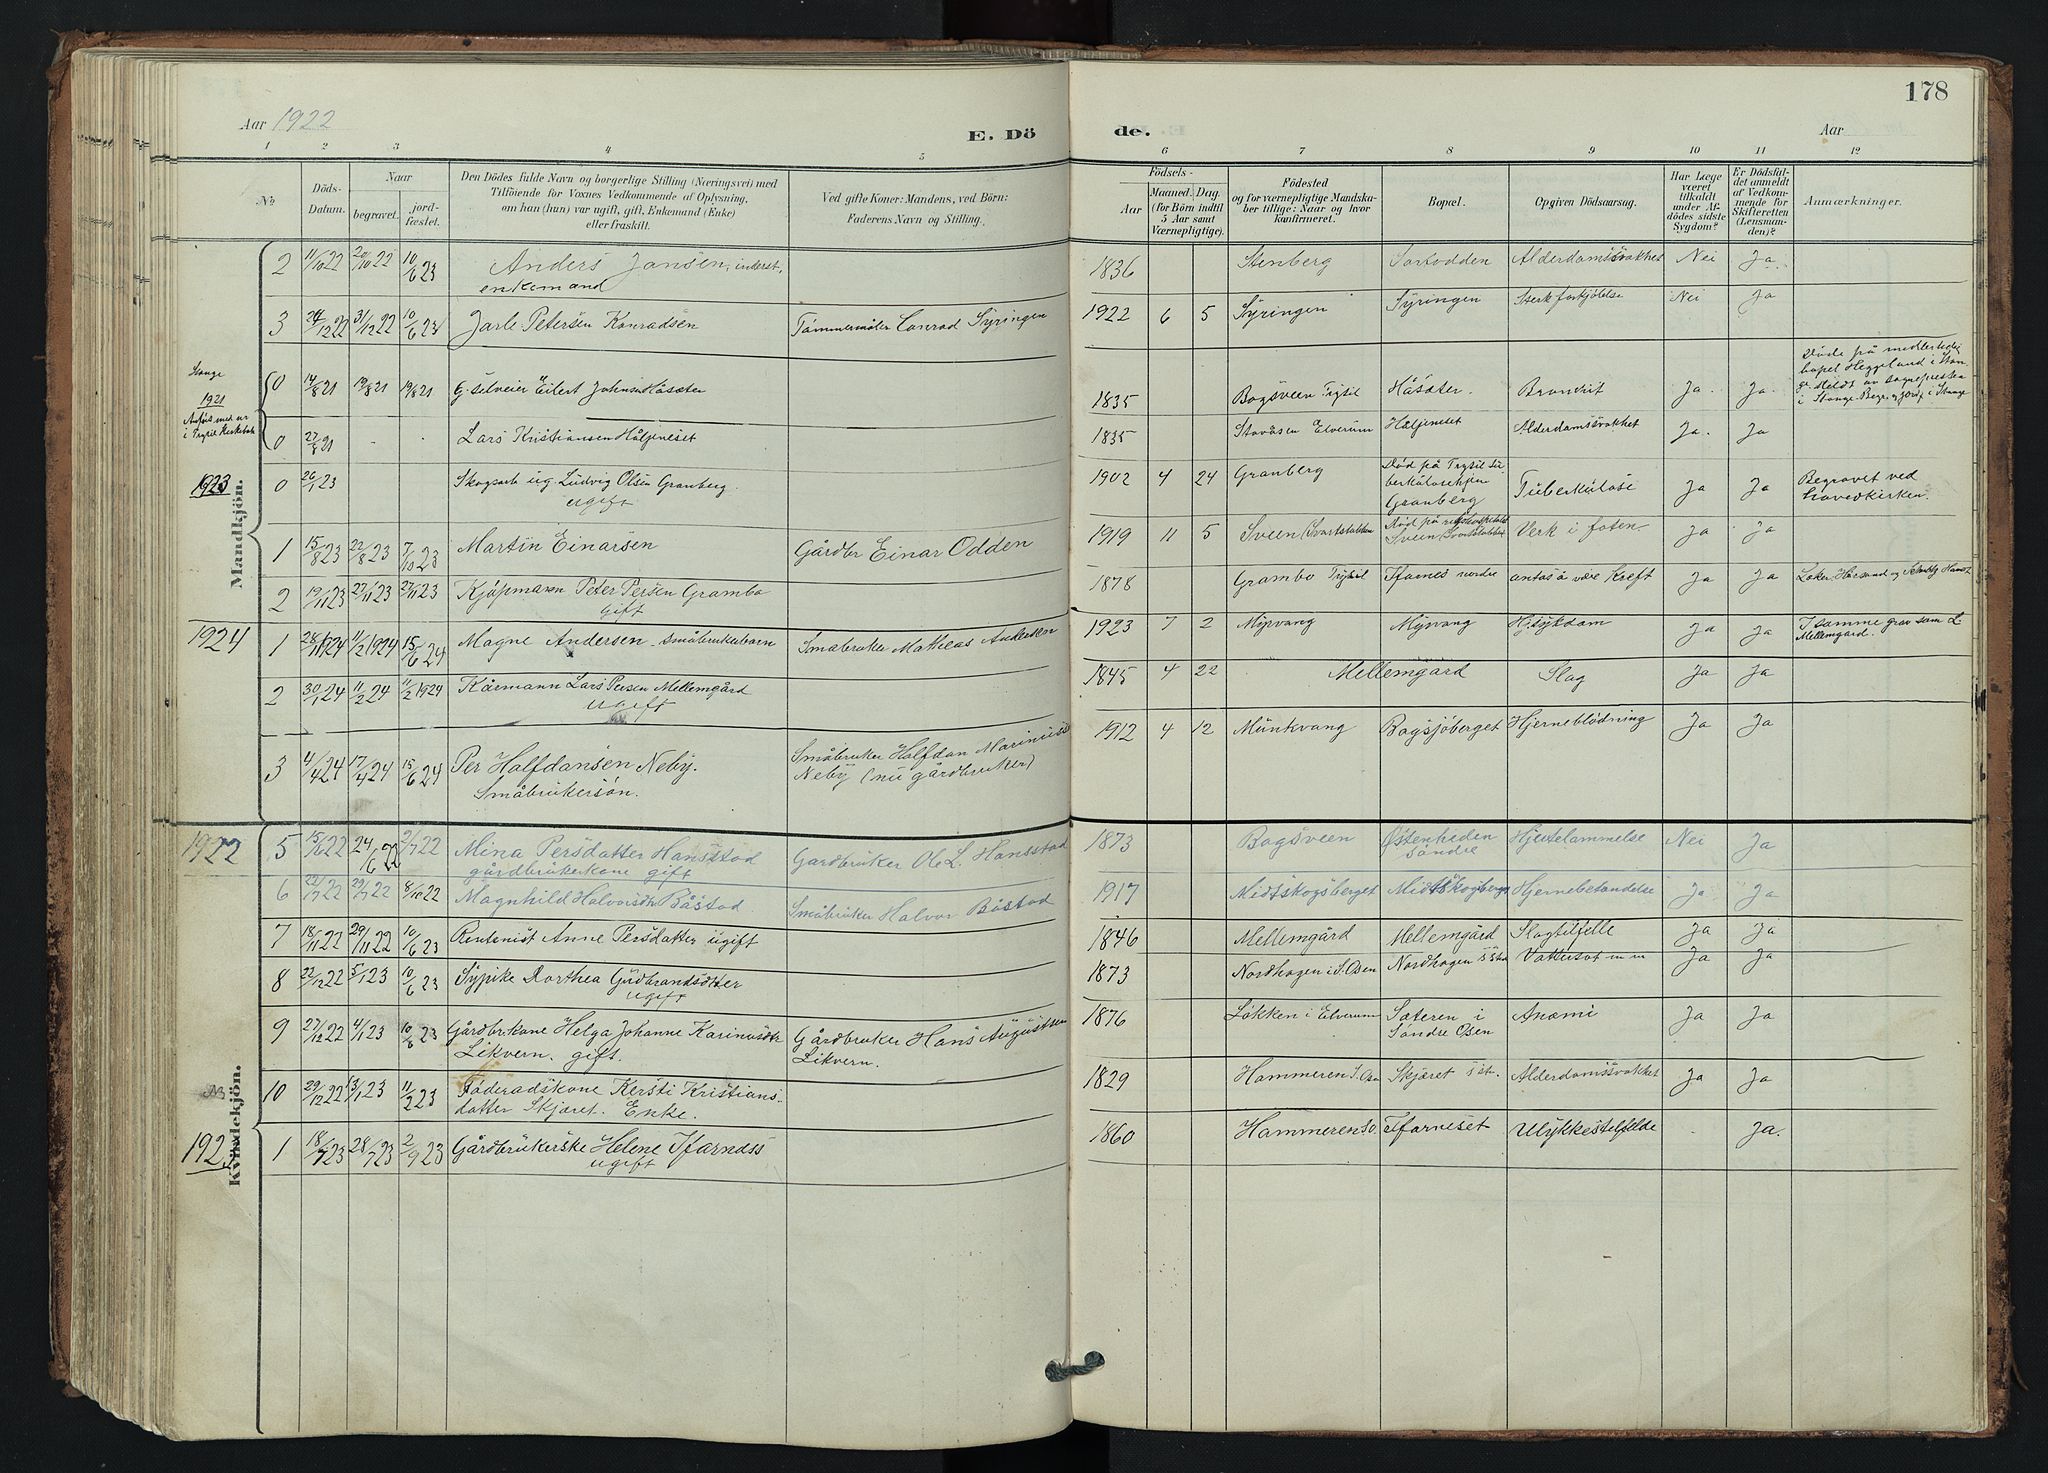 178
Aar 1922
E. Dö
de.
Aar
1 2 3 4 5 6 7 8 9 10 11 12
No.
Döds-
Datum.
Naar
begravet.
jord-
fæstet.
Den Dödes fulde Navn og borgerlige Stilling (Næringsvei) med
Tilföiende for Voxnes Vedkommende af Oplysning,
om han (hun) var ugift, gift, Enkemand (Enke)
eller fraskilt.
Ved gifte Koner: Mandens, ved Börn:
Faderens Navn og Stilling.
Födsels-
Aar
Maaned. Dag.
(for Börn indtil
5 Aar samt
Værnepligtige).
Födested
og for værnepligtige Mandska-
ber tillige: Naar og hvor
konfirmeret.
Bopæl.
Opgiven Dödsaarsag.
Har Læge
været
tilkaldt
under Af-
dödes sidste
Sygdom?
Er Dödsfal-
det anmeldt
af Vedkom-
mende for
Skifteretten
(Lensman-
den)?
Anmærkninger.
Mandkjön.
2 11/10 22 20/10 22 10/6 23 Anders Jansen, inderst, 1836 Stenberg Sartodden Alderdomssvakhet Nei Ja
enkemand
3 24/12 22 31/12 22 10/6 23 Jarle Petersen Konradsen Tömmermåler Conrad Syringen 1922 6 5 Syringen Syringen Sterk forkjölelse Nei Ja
Stange
1921
0 14/8 21 19/8 21 19/8 21 Eilert Johnsen Håsæter 1835 Bogsveen Trysil Håsæter Ja Ja
i Trysil Kirkebok
0 27/8 21 - - Lars Kristiansen Håljeneset 1835 Stavåsen Elverum Håljeneset Alderdomssvakhet Ja Ja
1923 0 26/1 23 Skogsarb ug. Ludvig Olsen Granberg 1902 4 24 Granberg Död på Trysil Tu-
berkulosehjem
Granberg Tuberkulose Ja Ja Begravet ved
hovedkirken.
ugift
1 15/8 23 22/8 23 7/10 23 Martin Einarsen Gårdbr Einar Odden 1919 11 5 Sveen Verk i foten Ja Ja
2 19/11 23 27/11 23 27/11 23 Kjöpmann Peter Persen Grambo 1878 Grambo Trysil nordre antas å være Kreft Ja Ja
gift
1924 1 28/1 1924 11/2 1924 15/6 24 Magne Andersen småbrukerbarn Småbruker Matheas Andersen 1923 7 2 Myrvang Myrvang Hj.sykdom Ja Ja I samme grav som L.
Mellemgård.
2 30/1 24 11/2 24 11/2 1924 Kårmann Lars Persen Mellemgård 1845 4 22 Mellemgård Slag Ja Ja
ugift
3 4/4 24 17/4 24 15/6 24 Per Halfdansen Neby. Småbruker Halfdan 1912 4 12 Munkvang Bogsjöberget Hjerneblödning Ja Ja
Småbrukersön. Neby (nu gårdbruker)
Kvindekjön.
1922 5 15/6 22 24/6 22 2/7 22 Mina Persdatter Hansstad Gårdbruker Ole L. Hansstad 1873 Bogsveen Østenheden
söndre Hjertelammelse Nei Ja
gårdbrukerkone gift
6 22/7 22 29/7 22 8/10 22 Magnhild Halvorsdtr Båstad Småbruker Halvor Båstad 1917 Midtskogsberget Midtskogberget Hjernebetændelse Ja Ja
7 18/11 22 29/11 22 10/6 23 Rentenist Anne Persdatter ugift 1846 Mellemgård Mellemgård Slagtilfelle Ja Ja
8 22/12 22 5/1 23 10/6 23 Sypike Dorthea Gudbrandsdtter 1873 Nordhagen i S. Osen Nordhagen Vattersot Ja Ja
ugift
9 27/12 22 4/1 23 10/6 23 Gårdbrkone Helga Johanne Karinusdtr Gårdbruker Hans Augustsen 1876 Løkken i Elverum Sæteren i
Søndre Osen Anæmi Ja Ja
Likvern. gift. Likvern.
10 29/12 22 13/1 23 11/2 23 Föderådskone Kersti Kristians- 1829 Hammeren S. Osen Skjæret Alderdomssvakhet Ja Ja
datter Skjæret. Enke.
1923 1 18/7 23 28/7 23 2/9 23 Gårdbrukerske Helene 1860 Hammeren S.O. Ulykkestilfelde Ja.
ugift